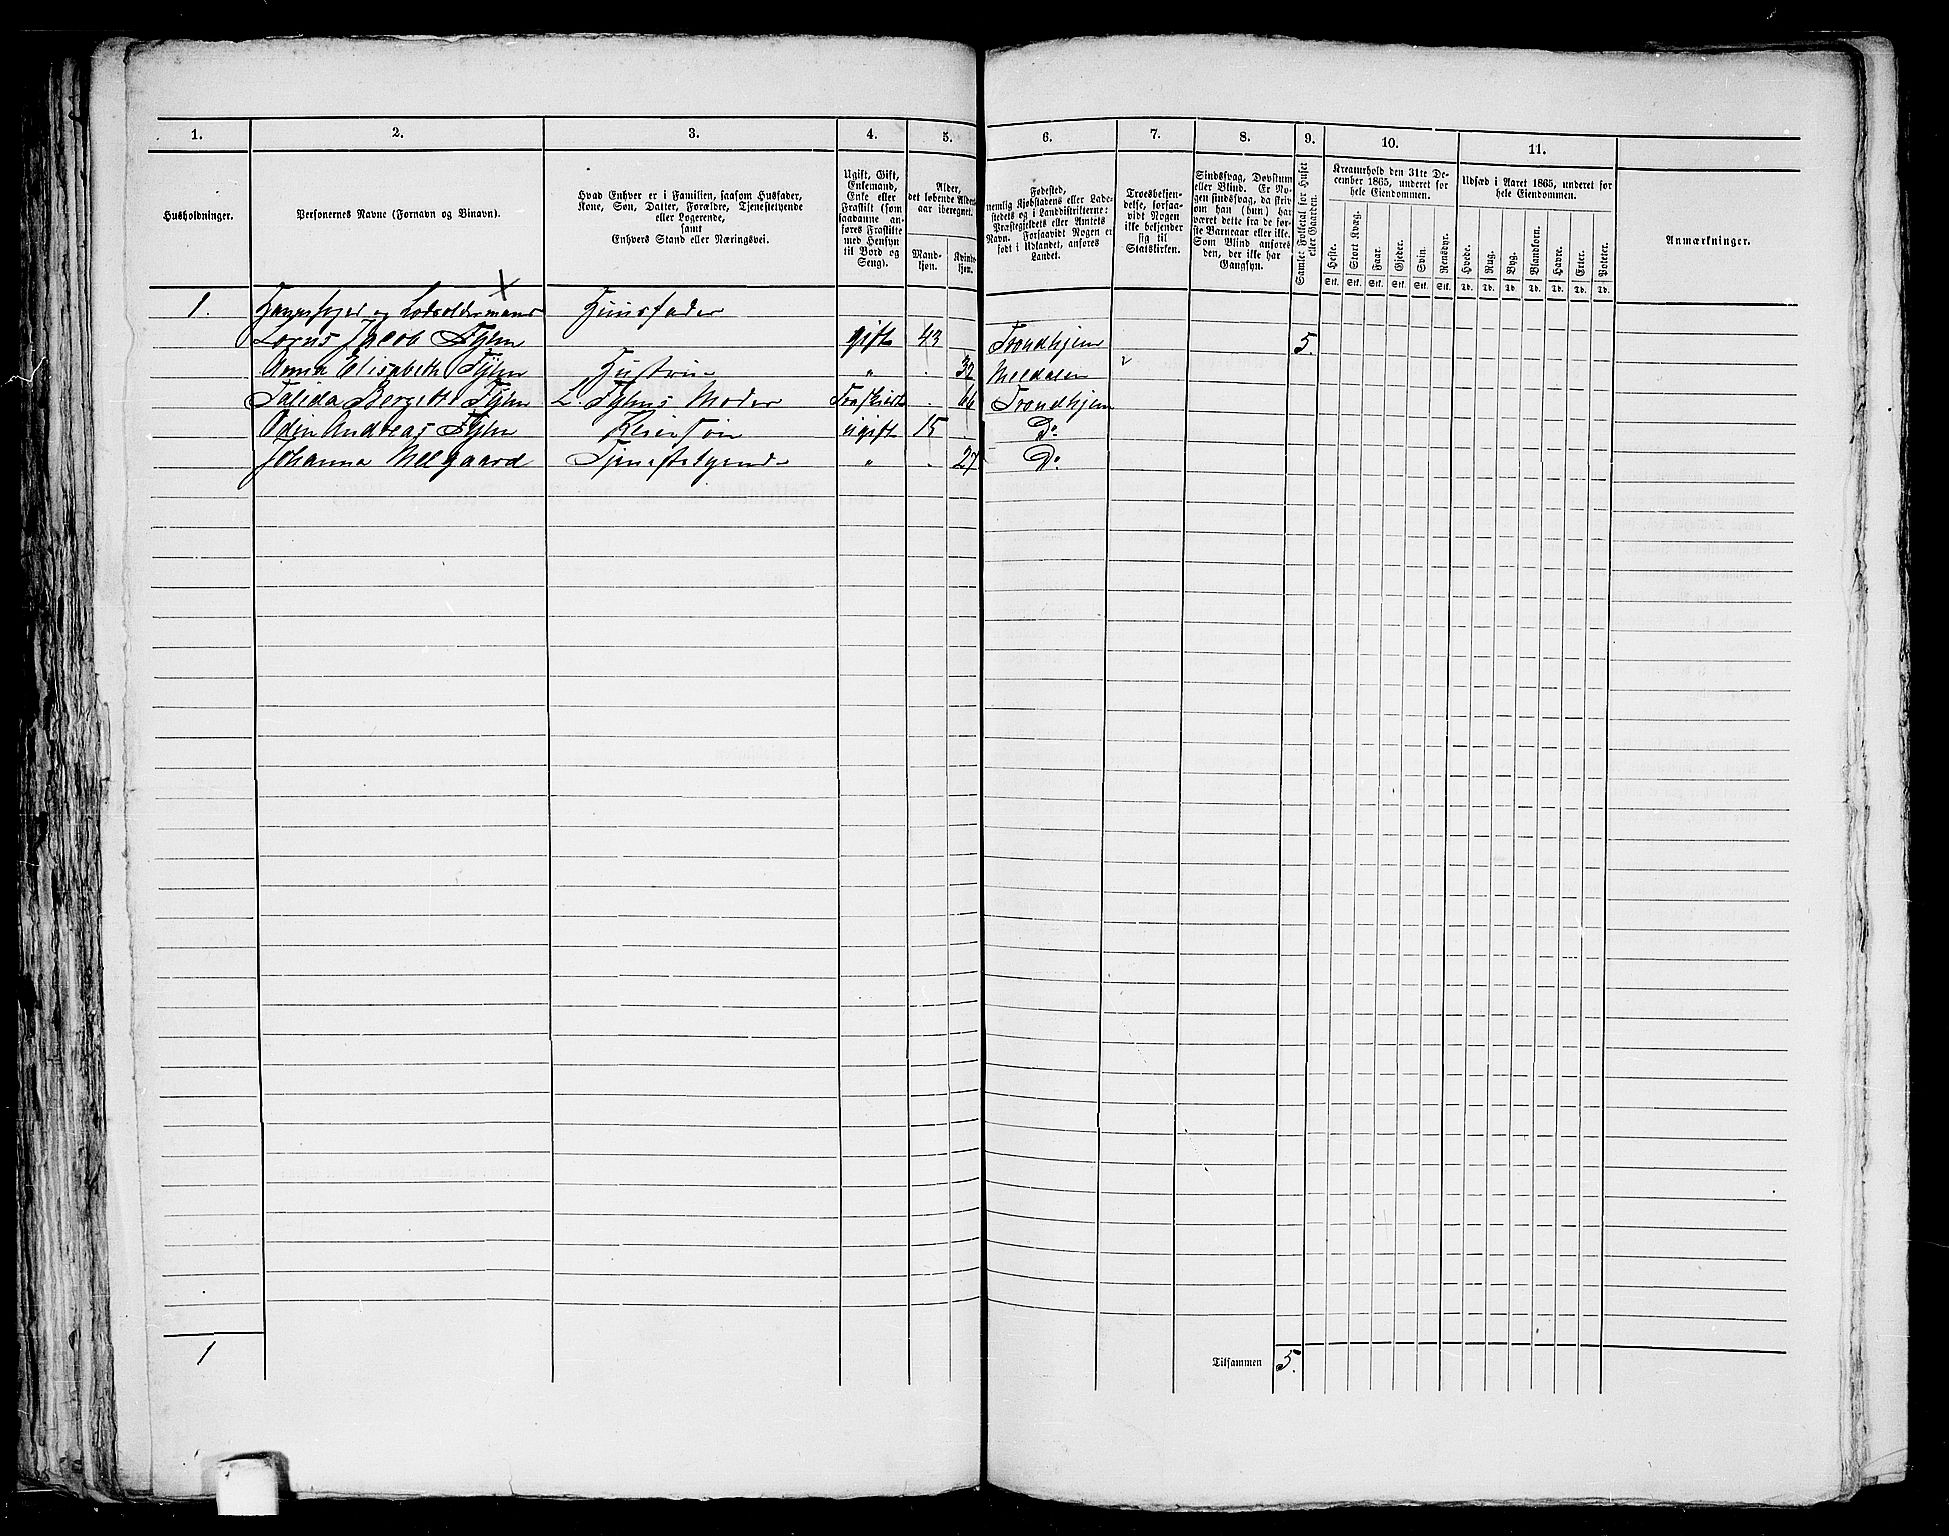 1. 2. 3. 4. 5. 6. 7. 8. 9. 10. 11.
Husholdninger.
Personernes Navne (Fornavn og Binavn).
Hvad Enhver er i Familien, saasom Husfader,
Kone, Søn, Datter, Forældre, Tjenestetyende
eller Logerende,
samt
Enhvers Stand eller Næringsvei.
Ugift, Gift,
Enkemand,
Enke eller
Fraskilt (som
saadanne an-
føres Fraskilte
med Hensyn
til Bord og
Seng).
Alder,
det løbende Alders-
aar iberegnet.
Mand-
kjøn.
Kvinde-
kjøn.
Fødested,
nemlig Kjøbstadens eller Lade-
stedets og i Landdistrikterne:
Præstegjeldets eller Amtets
Navn. Forsaavidt Nogen er
født i Udlandet, anføres
Landet.
Troesbekjen-
delse, forsaa-
vidt Nogen
ikke bekjender
sig til
Statskirken.
Sindssvag, Døvstum
eller Blind. Er No-
gen sindssvag, da skriv
om han (hun) har
været dette fra de før-
ste Barneaar eller ikke.
Som Blind anføres
den, der ikke har
Gangsyn.
Samlet Folketal for Huset
eller Gaarden.
Kreaturhold den 31te De-
cember 1865, underet for
hele Eiendommen.
Heste. Stort Kvæg. Faar. Gjeder. Svin. Rensdyr.
Stk. Stk. Stk. Stk. Stk. Stk.
Udsæd i Aaret 1865, underet for
hele Eiendommen.
Hvede. Rug. Byg. Blandkorn. Havre. Erter. Poteter.
Td. Td. Td. Td. Td. Td. Td.
Anmærkninger.
1. Havnefoged og Lodsoldermand Huusfader
Jacob Fyhn gift 43 Trondhjem 5.
Anna Elisabeth Fyhn Hustru " 32 Meldalen
Berget Fyhn L. Fyhns Moder Fraskilt 66 Trondhjem
Odin Andreas Fyhn ugift 15 Do
Johanna Melgaard Tjenestetyende " 27 Do
1 Tilsammen 5.